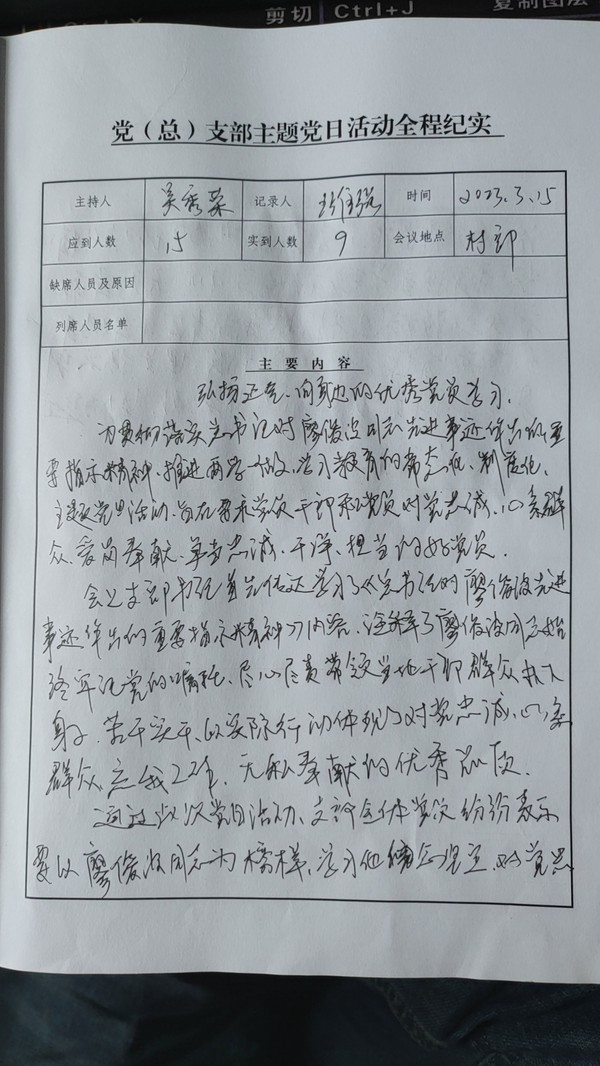 剪切 Ctrl+J 复制图层
党（总）支部主题党日活动全程纪实
主持人 吴秀荣 记录人 时间 2023.3.15
应到人数 15 实到人数 9 会议地点 村部
缺席人员及原因
列席人员名单
主要内容
弘扬正气、向身边的优秀党员学习.
为贯彻落实总书记对廖俊波同志先进事迹作出的重
要指示精神、推进两学一做、学习教育的常态化、制度化、
主题党日活动、旨在要求党员干部和党员对党忠诚、心系群
众、爱岗奉献、忠诚、干净、担当的好党员.
会上支部书记首先传达学习了《总书记对廖俊波先进
事迹作出的重要指示精神》内容、诠释了廖俊波同志始
终牢记党的嘱托、尽心尽责带领当地干部群众扑下
身子、苦干实干、以实际行动体现了对党忠诚、心系
群众、忘我工作、无私奉献的优秀品质.
通过此次党日活动、支部全体党员纷纷表示
要以廖俊波同志为榜样、学习他信念坚定、对党忠